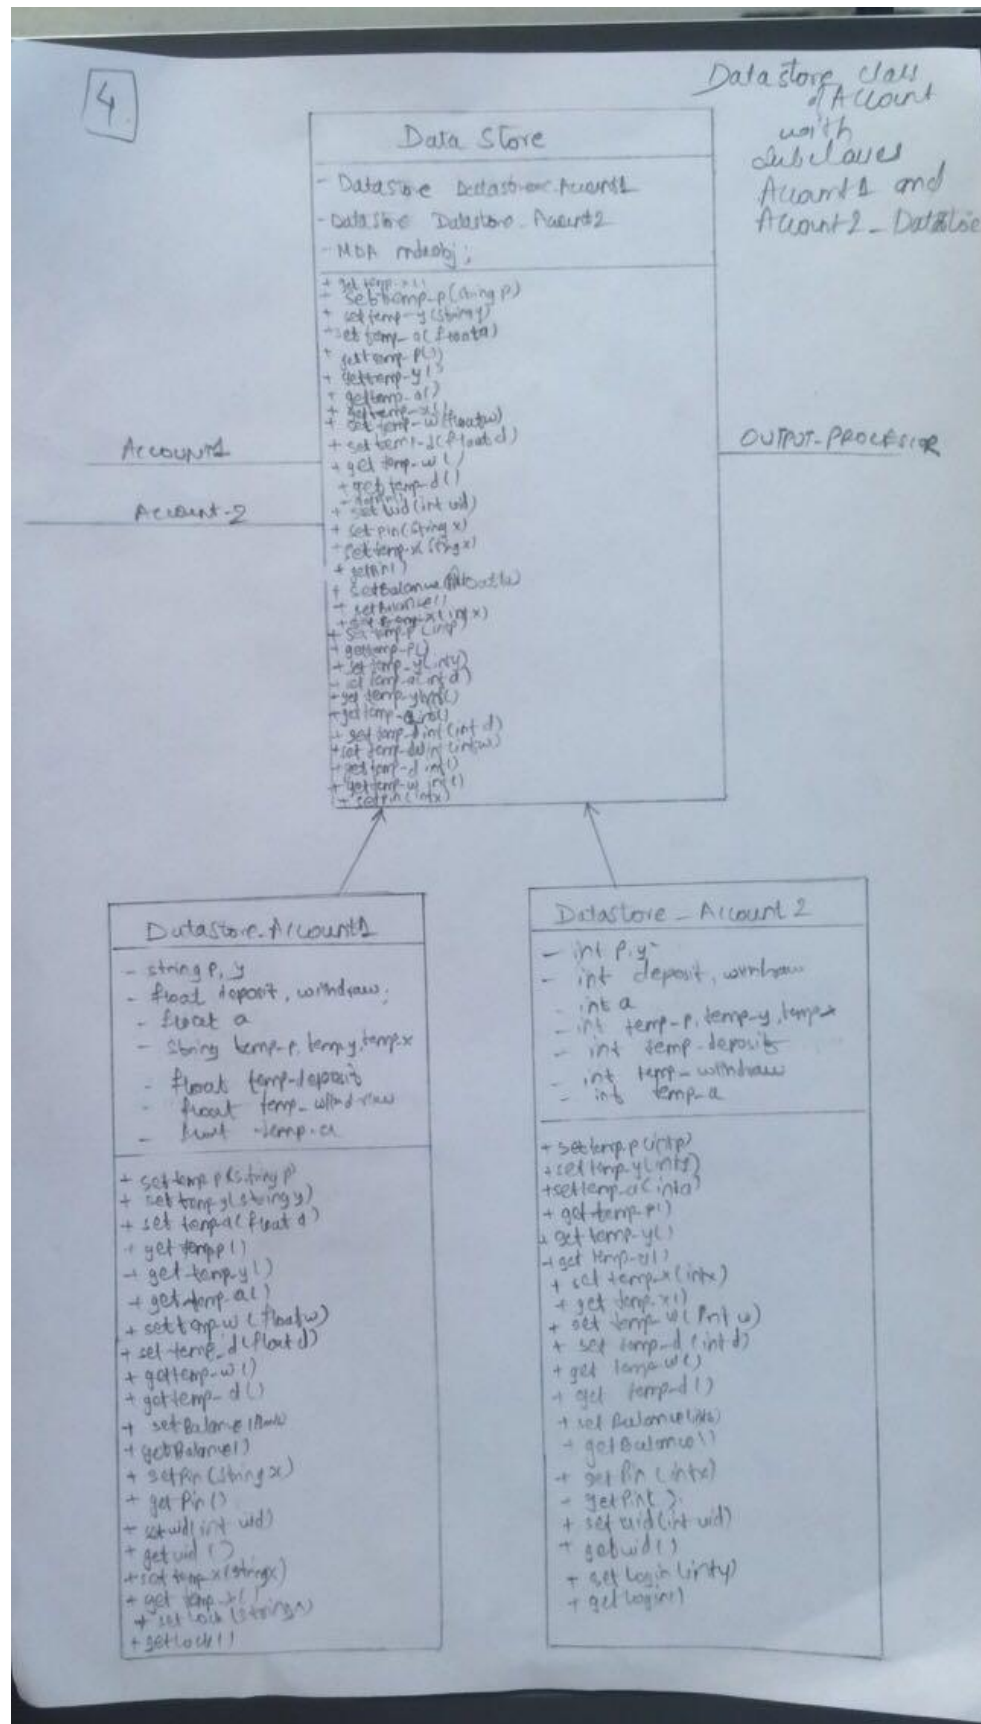 4.
Datastore class
of Account
with
subclasses
Account1 and
Account2_Datastore
Data Store
- Datastore Datastore_Account1
- Datastore Datastore_Account2
- MDA mdaobj;
+ get temp-x()
+ settemp-p(string p)
+ set temp-y(string y)
+ set temp-a(float a)
+ gettemp-p()
+ gettemp-y()
+ gettemp-a()
+ set temp-w(float w)
+ set temp-d(float d)
+ get temp-w()
+ get temp-d()
+ set uid(int uid)
+ set pin(string x)
+ set temp-x(string x)
+ getPin()
+ setBalance(float
+ set temp-x(int x)
+ set temp-p(int p)
+ gettemp-p()
+ set temp-y(int y)
+ get temp-d int()
+ get temp-w int()
+ setpin(int x)
ACCOUNT1
Account-2
OUTPUT-PROCESSOR
Datastore-Account1
- string p, y
- float deposit, withdraw;
- float a
- String temp-p, temp-y, temp-x
- float temp-deposit
- float temp-withdraw
- float temp-a
+ set temp p(string p)
+ set temp y(string y)
+ set temp a(float a)
+ get temp p()
+ get temp-y()
+ get temp-a()
+ set temp w(float w)
+ set temp_d(float d)
+ gettemp-w()
+ gettemp-d()
+ set Balance(
+ getBalance()
+ setPin(string x)
+ get Pin()
+ set uid(int uid)
+ get uid()
+ set temp-x(string x)
+ get temp-x()
+ set Lock(string
+ getLock()
Datastore_Account2
- int p, y
- int deposit, withdraw
- int a
- int temp-p, temp-y, temp-x
- int temp-deposit
- int temp-withdraw
- int temp-a
+ settemp-p(int p)
+ set temp-y(int y)
+ settemp-a(int a)
+ get temp-p()
+ get temp-y()
+ get temp-a()
+ set temp-x(int x)
+ get temp-x()
+ set temp w(int w)
+ set temp-d(int d)
+ get temp-w()
+ get temp-d()
+ set Balance(int
+ getBalance()
+ set Pin(int x)
- getPin()
+ set uid(int uid)
+ getuid()
+ set Login(int y)
+ getLogin()